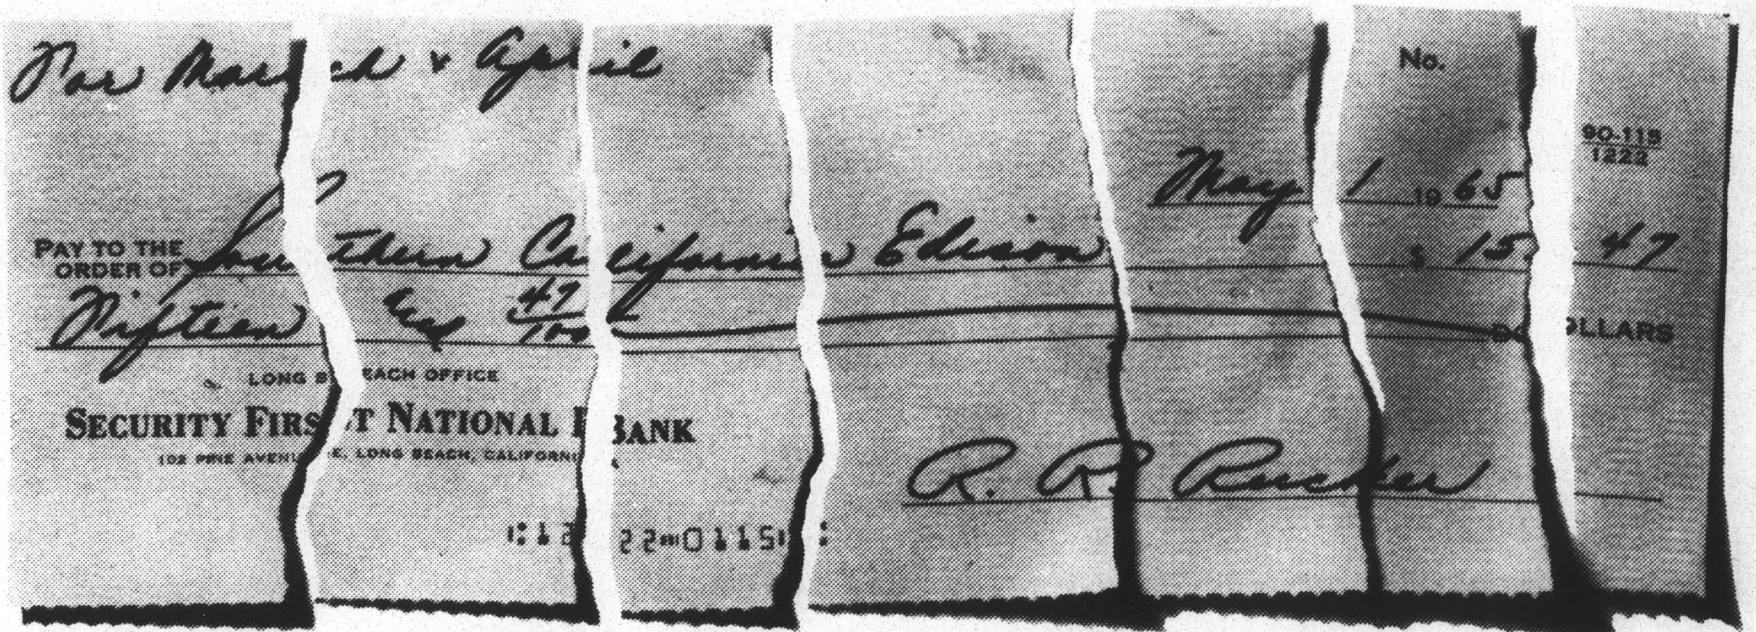 For March & April
No.
90-118
1222
May 1 19 65
PAY TO THE
ORDER OF Southern California Edison $ 15 47
Fifteen and 47/100 DOLLARS
LONG BEACH OFFICE
SECURITY FIRST NATIONAL BANK
102 PINE AVENUE, LONG BEACH, CALIFORNIA
R. R. Rucker